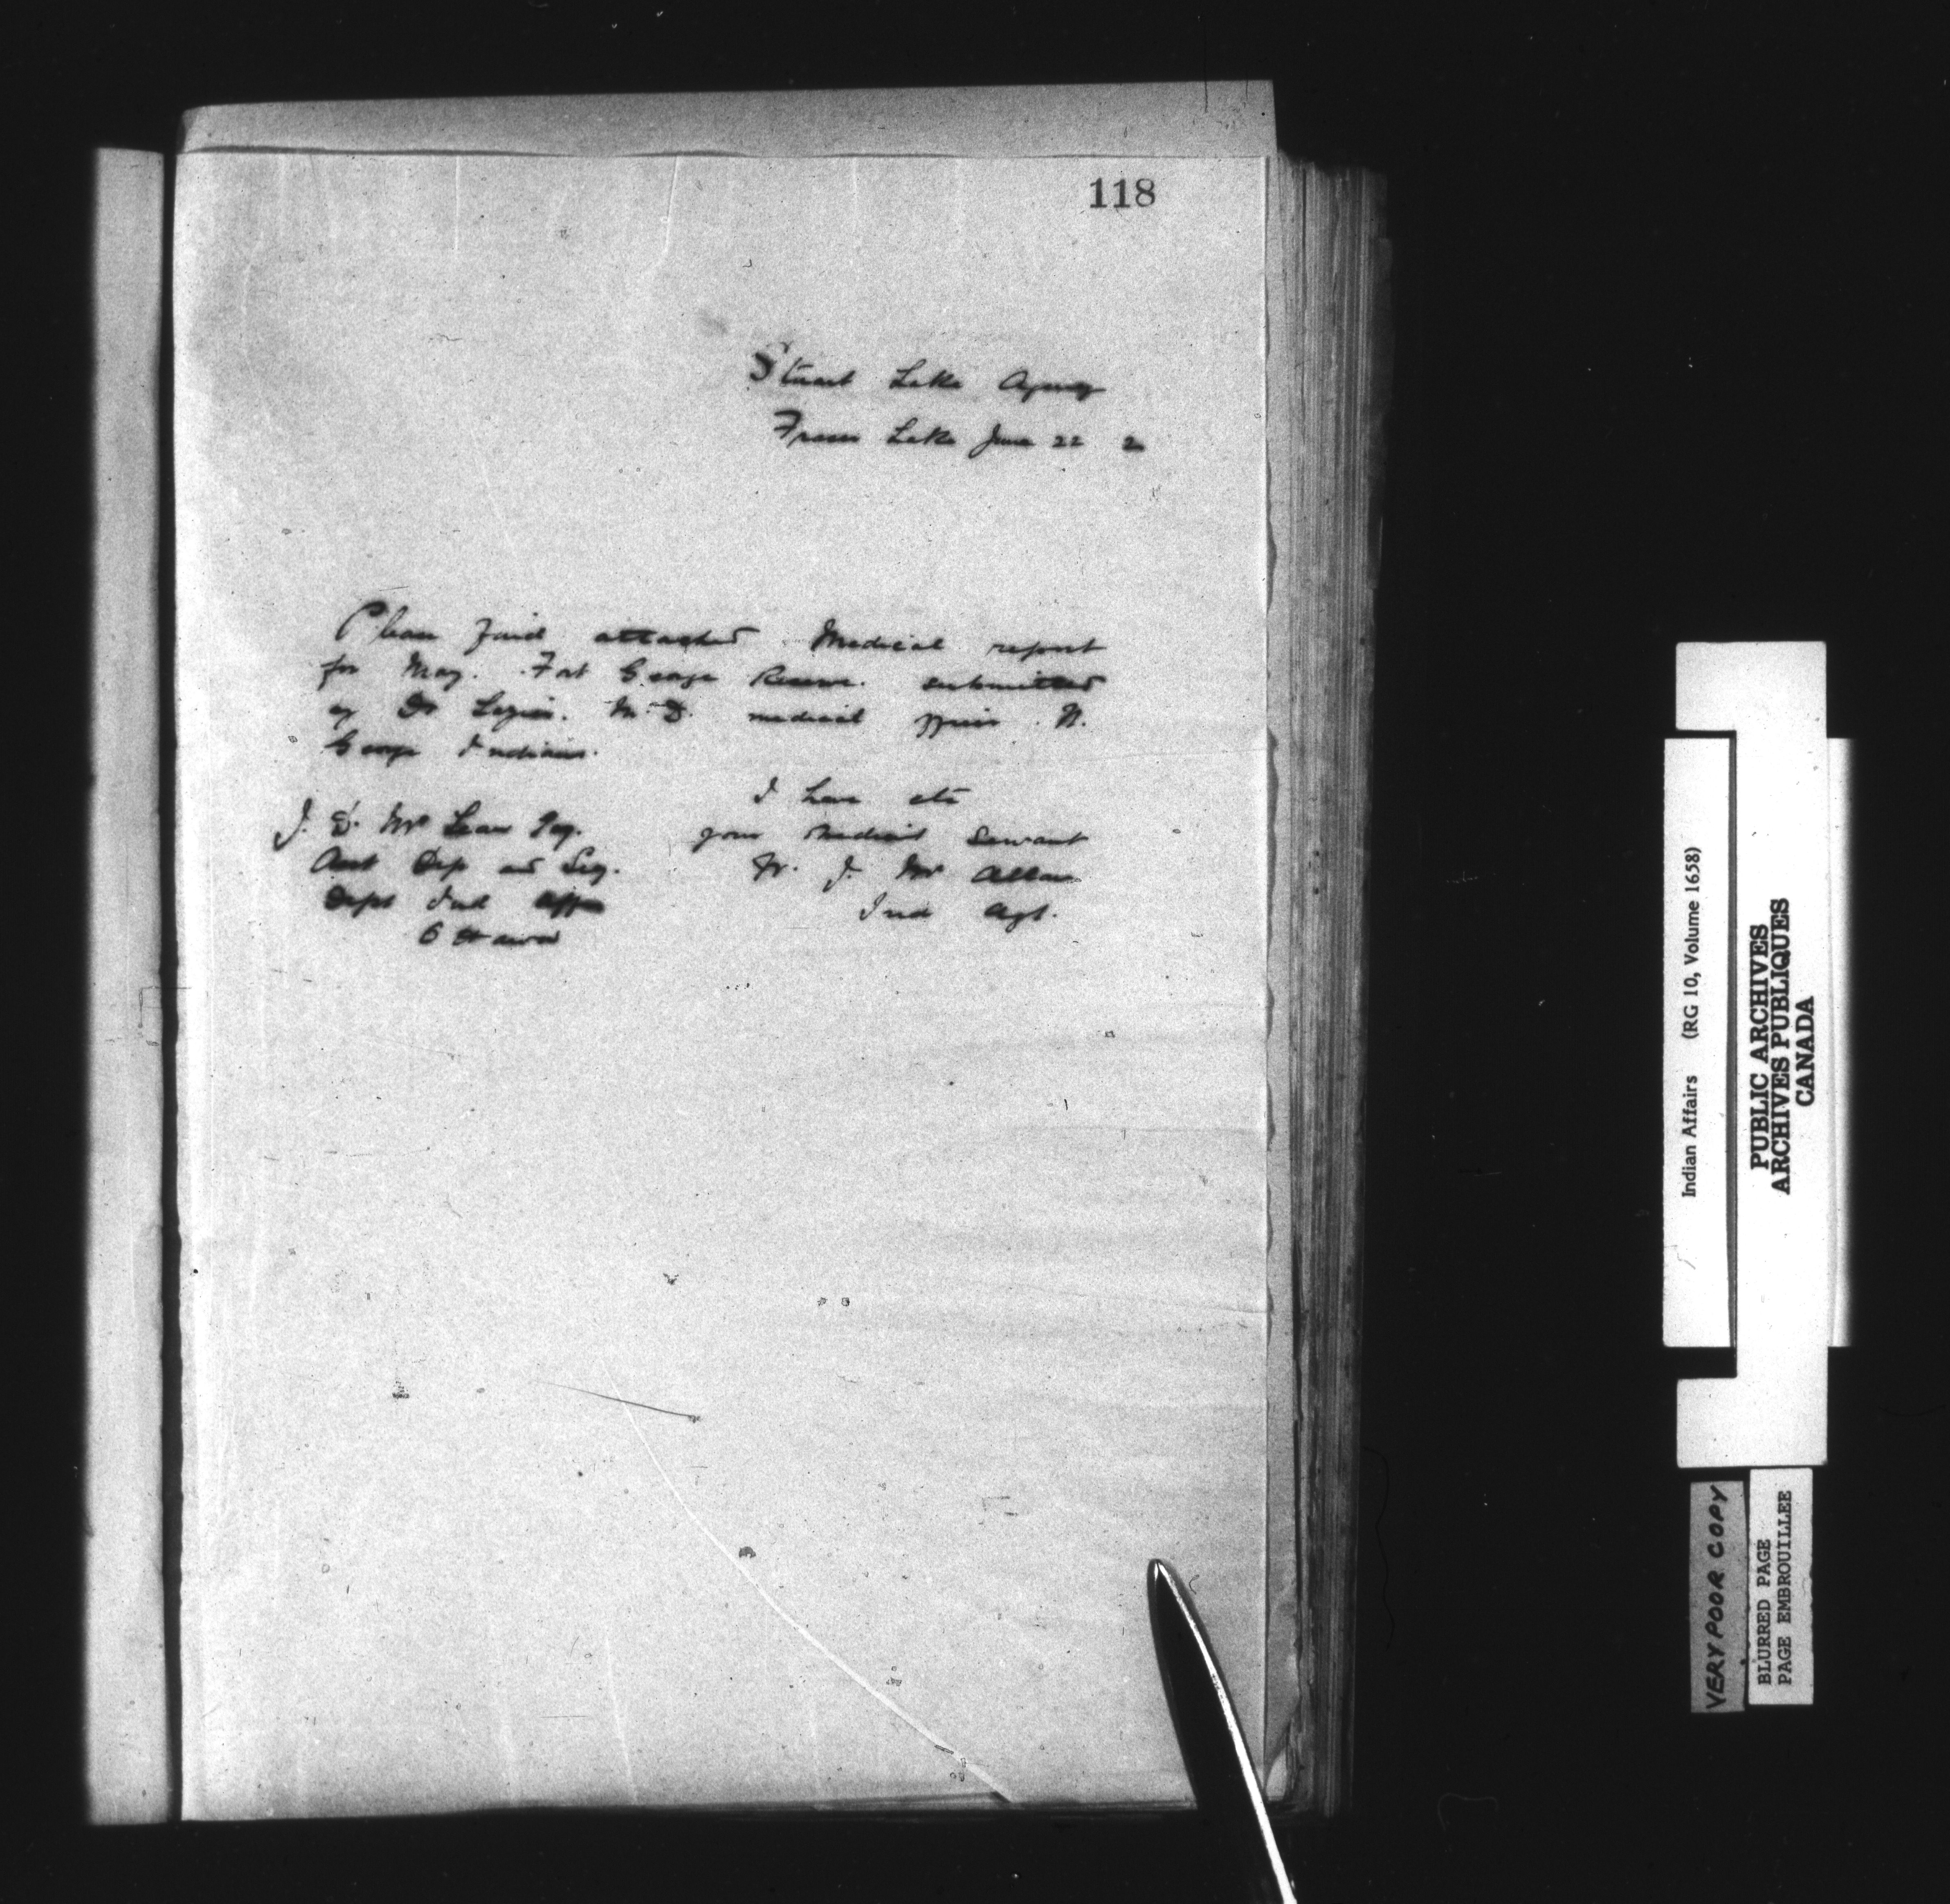 118
Stuart Lake Agency
Fraser Lake June 22 2
Please find attached Medical report
for May. Fort George Reserve. submitted
by Dr M.D. medical officer
George Indians.
I have etc
your obedient Servant
W. J. Mc Allan
Ind Agt.
J. D. Mc Lean Esq.
Asst Dep and Secy.
Dept Ind Affrs
Ottawa
Indian Affairs (RG 10, Volume 1658)
PUBLIC ARCHIVES
ARCHIVES PUBLIQUES
CANADA
VERY POOR COPY
BLURRED PAGE
PAGE EMBROUILLEE